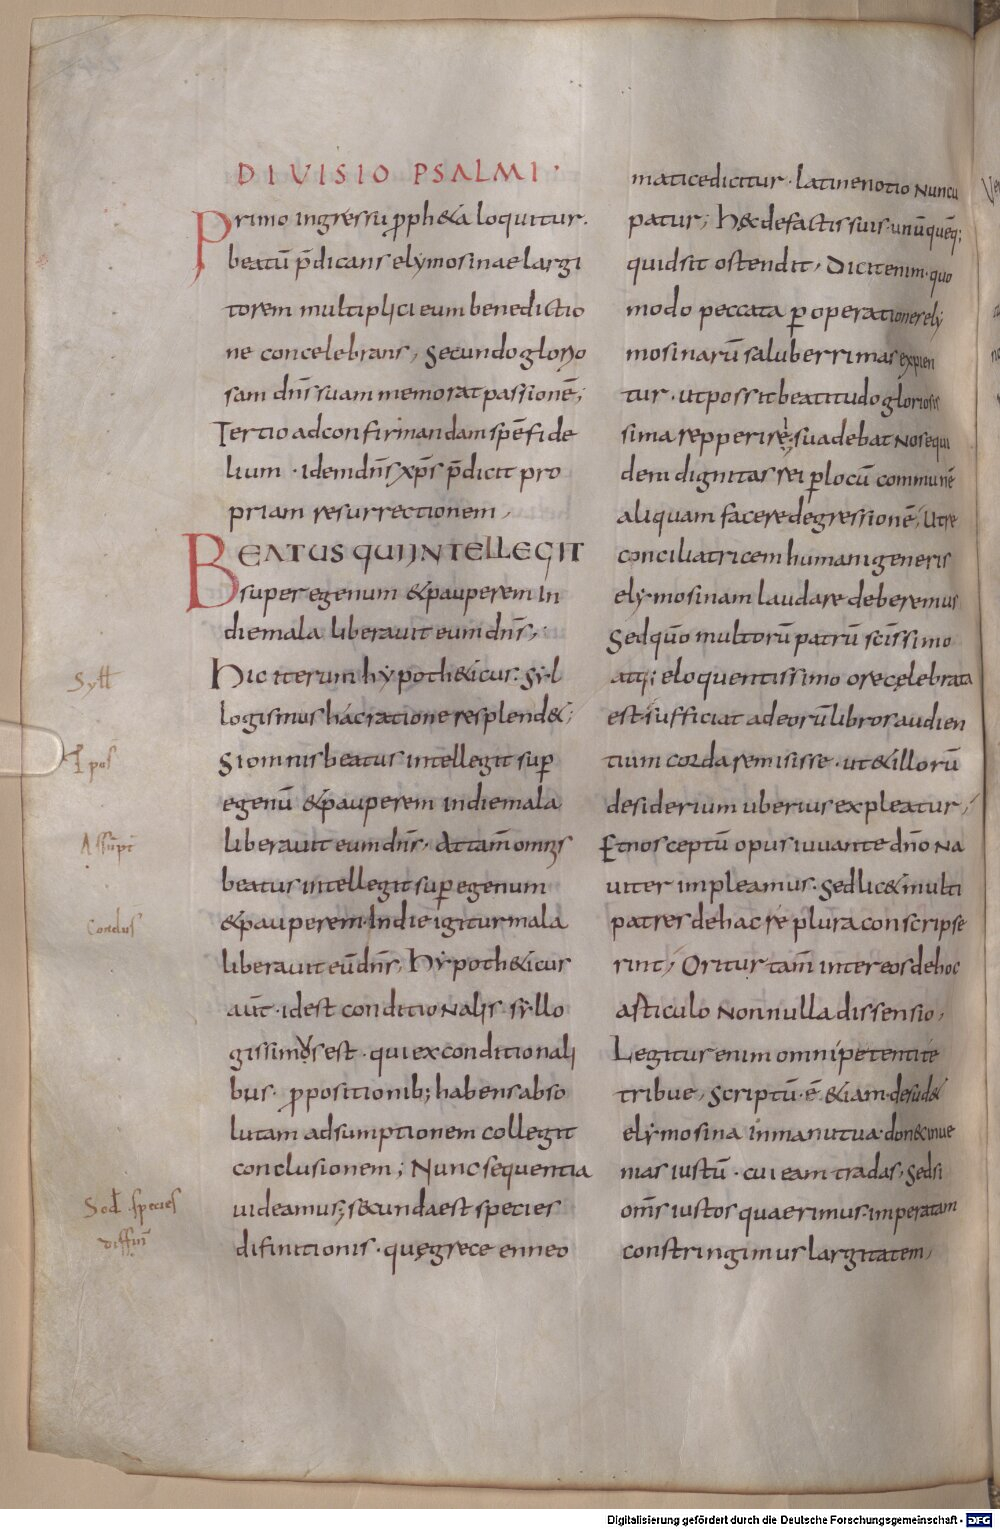 DIUISIO PSALMI·
Primo ingressu ꝓph&a loquitur.
beatū p̄dicans elymosinae largi
torem multiplici eum benedictio
ne concelebrans, Secundo glorio
sam dn̄i suam memorat passionē;
Tertio ad confirmandam spē fide
lium · idem dn̄s xp̄s p̄dicit pro
priam resurrectionem,
BEATUS QUI INTELLEGIT
super egenum &pauperem In
die mala liberauit eum dn̄s;
Hic iterum hypoth&icus. Syl
logismus hác ratione resplend&;
Si omnis beatus intellegit suꝑ
egenū &pauperem in die mala
liberauit eum dn̄s, At tam̄ omnis
beatus intellegit suꝑ egenum
&pauperem. In die igitur mala
liberauit eū dn̄s, Hypoth&icus
aūt · id est conditionalis · syllo
gissimos est · qui ex conditionali
bus · ꝓpositionib; habens abso
lutam adsumptionem collegit
conclusionem; Nunc sequentia
uideamus; secunda est species
difinitionis · quę grece enneo
Syll
Ipos
Assūpt
Conclus
Scd̄ species
diffin̄
matice dicitur · latine notio Nuncu
patur; H&c de factis suis · unū quēq;
quid sit ostendit, Dicit enim · quo
modo peccata ꝑ operationem ely
mosinarū saluberrimas expien
tur · ut possit beatitudo gloriosis
sima repperire; suadebat Nos equi
dem dignitas rei ꝑ locū communē
aliquam facere degressionē, Ut re
conciliatricem humani generis
elymosinam laudare deberemus
Sed quō multorū patrū sc̄issimo
atq; eloquentissimo ore celebrata
est sufficiat ad eorū libros audien
tium corda remisisse · ut &illorū
desiderium uberius expleatur,
Et nos ceptū opus iuuante dn̄o Na
uiter impleamus. Sed lic& multi
patres de hac re plura conscripse
rint, Oritur tam̄ inter eos de hoc
articulo Nonnulla dissensio,
Legitur enim omni petenti te
tribue, Scriptū · ē &iam · desud&
elymosina in manu tua · donec inue
nias iustū · cui eam tradas, Sed si
om̄s iustos quaerimus · imperatam
constringimus largitatem,
Digitalisierung gefördert durch die Deutsche Forschungsgemeinschaft - DFG